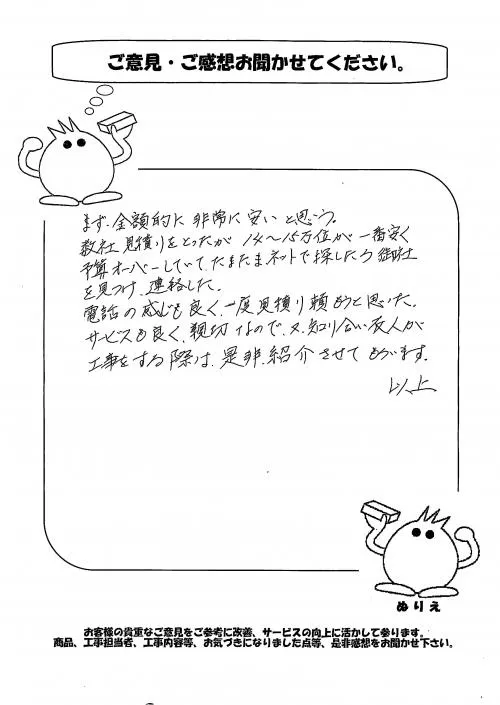 ご意見・ご感想お聞かせてください。
まず、金額的に非常に安いと思う。
数社見積りをとったが 14〜15万位が一番安く
予算オーバーしていて、たまたまネットで探したら御社
を見つけ、連絡した。
電話の感じも良く、一度見積り頼もうと思いた。
サービスも良く、親切なので、又、知り合い友人が
工事をする際は、是非、紹介させてもらいます。
以上
ぬりえ
お客様の貴重なご意見をご参考に改善、サービスの向上に活かして参ります。
商品、工事担当者、工事内容等、お気づきになりました点等、是非感想をお聞かせ下さい。